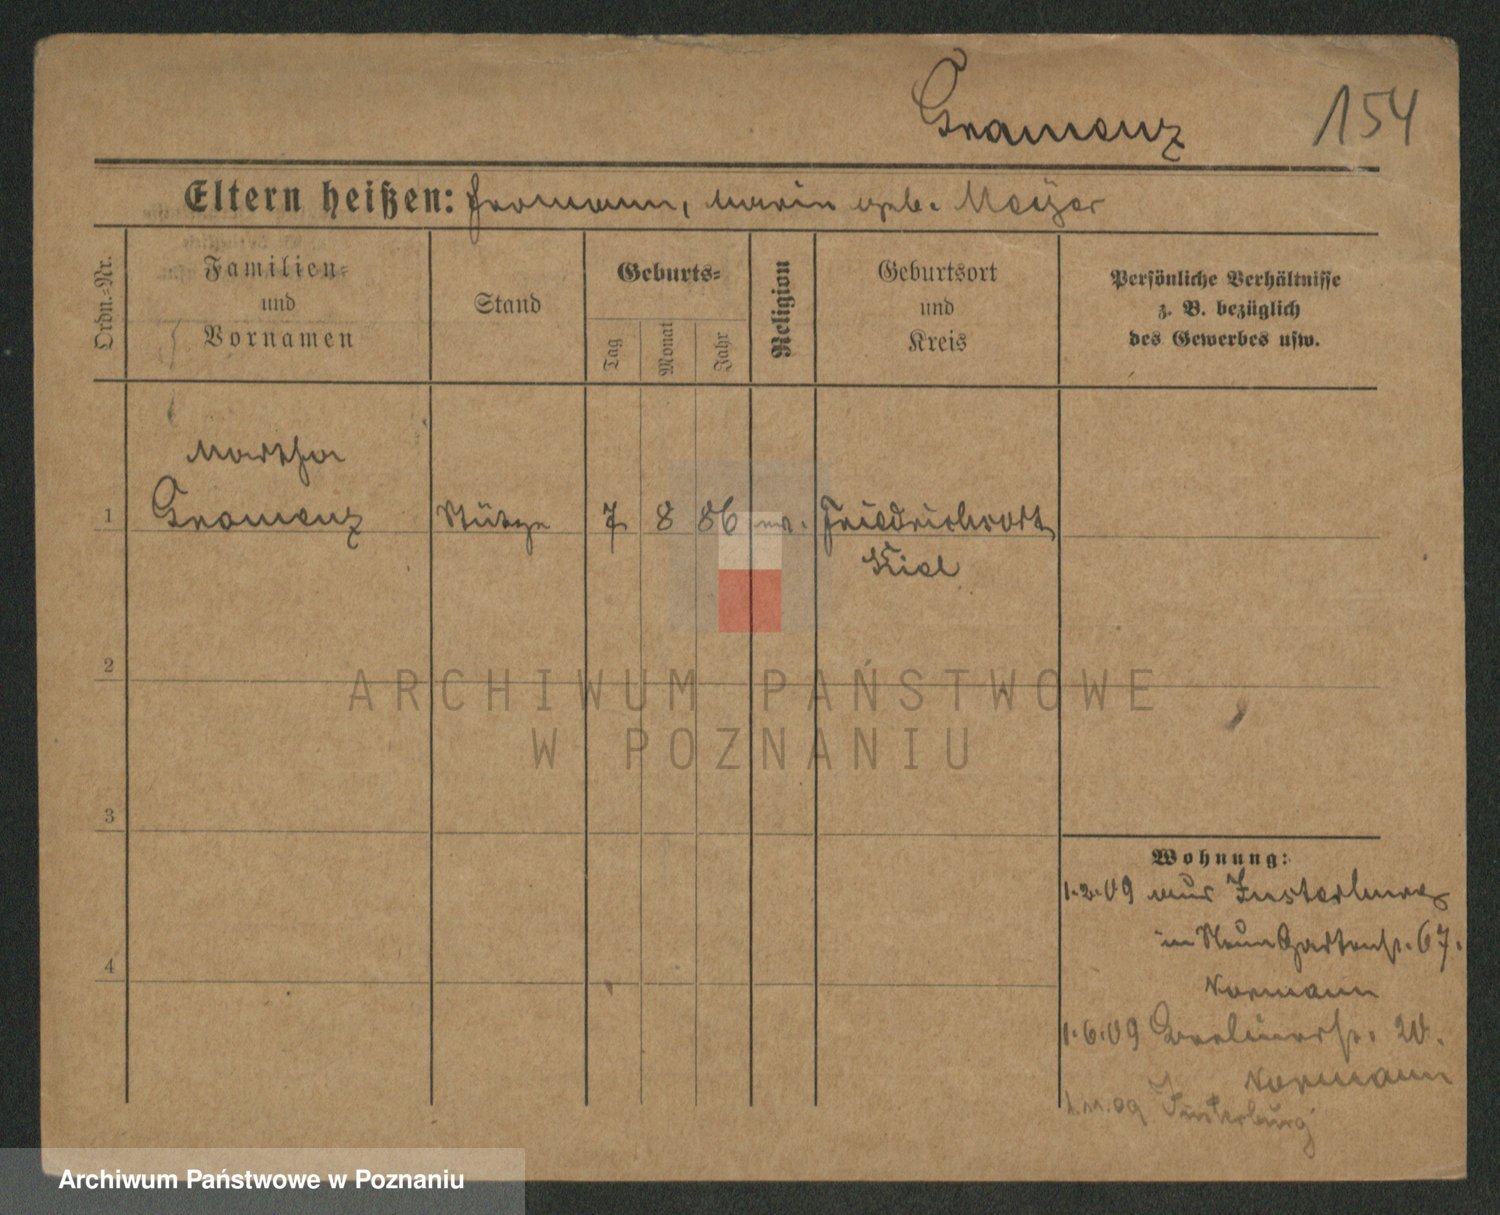 Gramenz 154
Eltern heißen: Hermann, Marie geb. Meyer
Ordn.-Nr.
Familien-
und
Vornamen
Stand
Geburts-
Tag
Monat
Jahr
Religion
Geburtsort
und
Kreis
Persönliche Verhältnisse
z. B. bezüglich
des Gewerbes usw.
Martha
1 Gramenz Stütze 7 8 86 ev. Friedrichsort
Kiel
2
ARCHIWUM PAŃSTWOWE
W POZNANIU
3
Wohnung:
1.2.09 aus Insterburg
in Gartenstr. 67.
4
Normann
1.6.09 20.
Normann
1.11.09 Insterburg
Archiwum Państwowe w Poznaniu